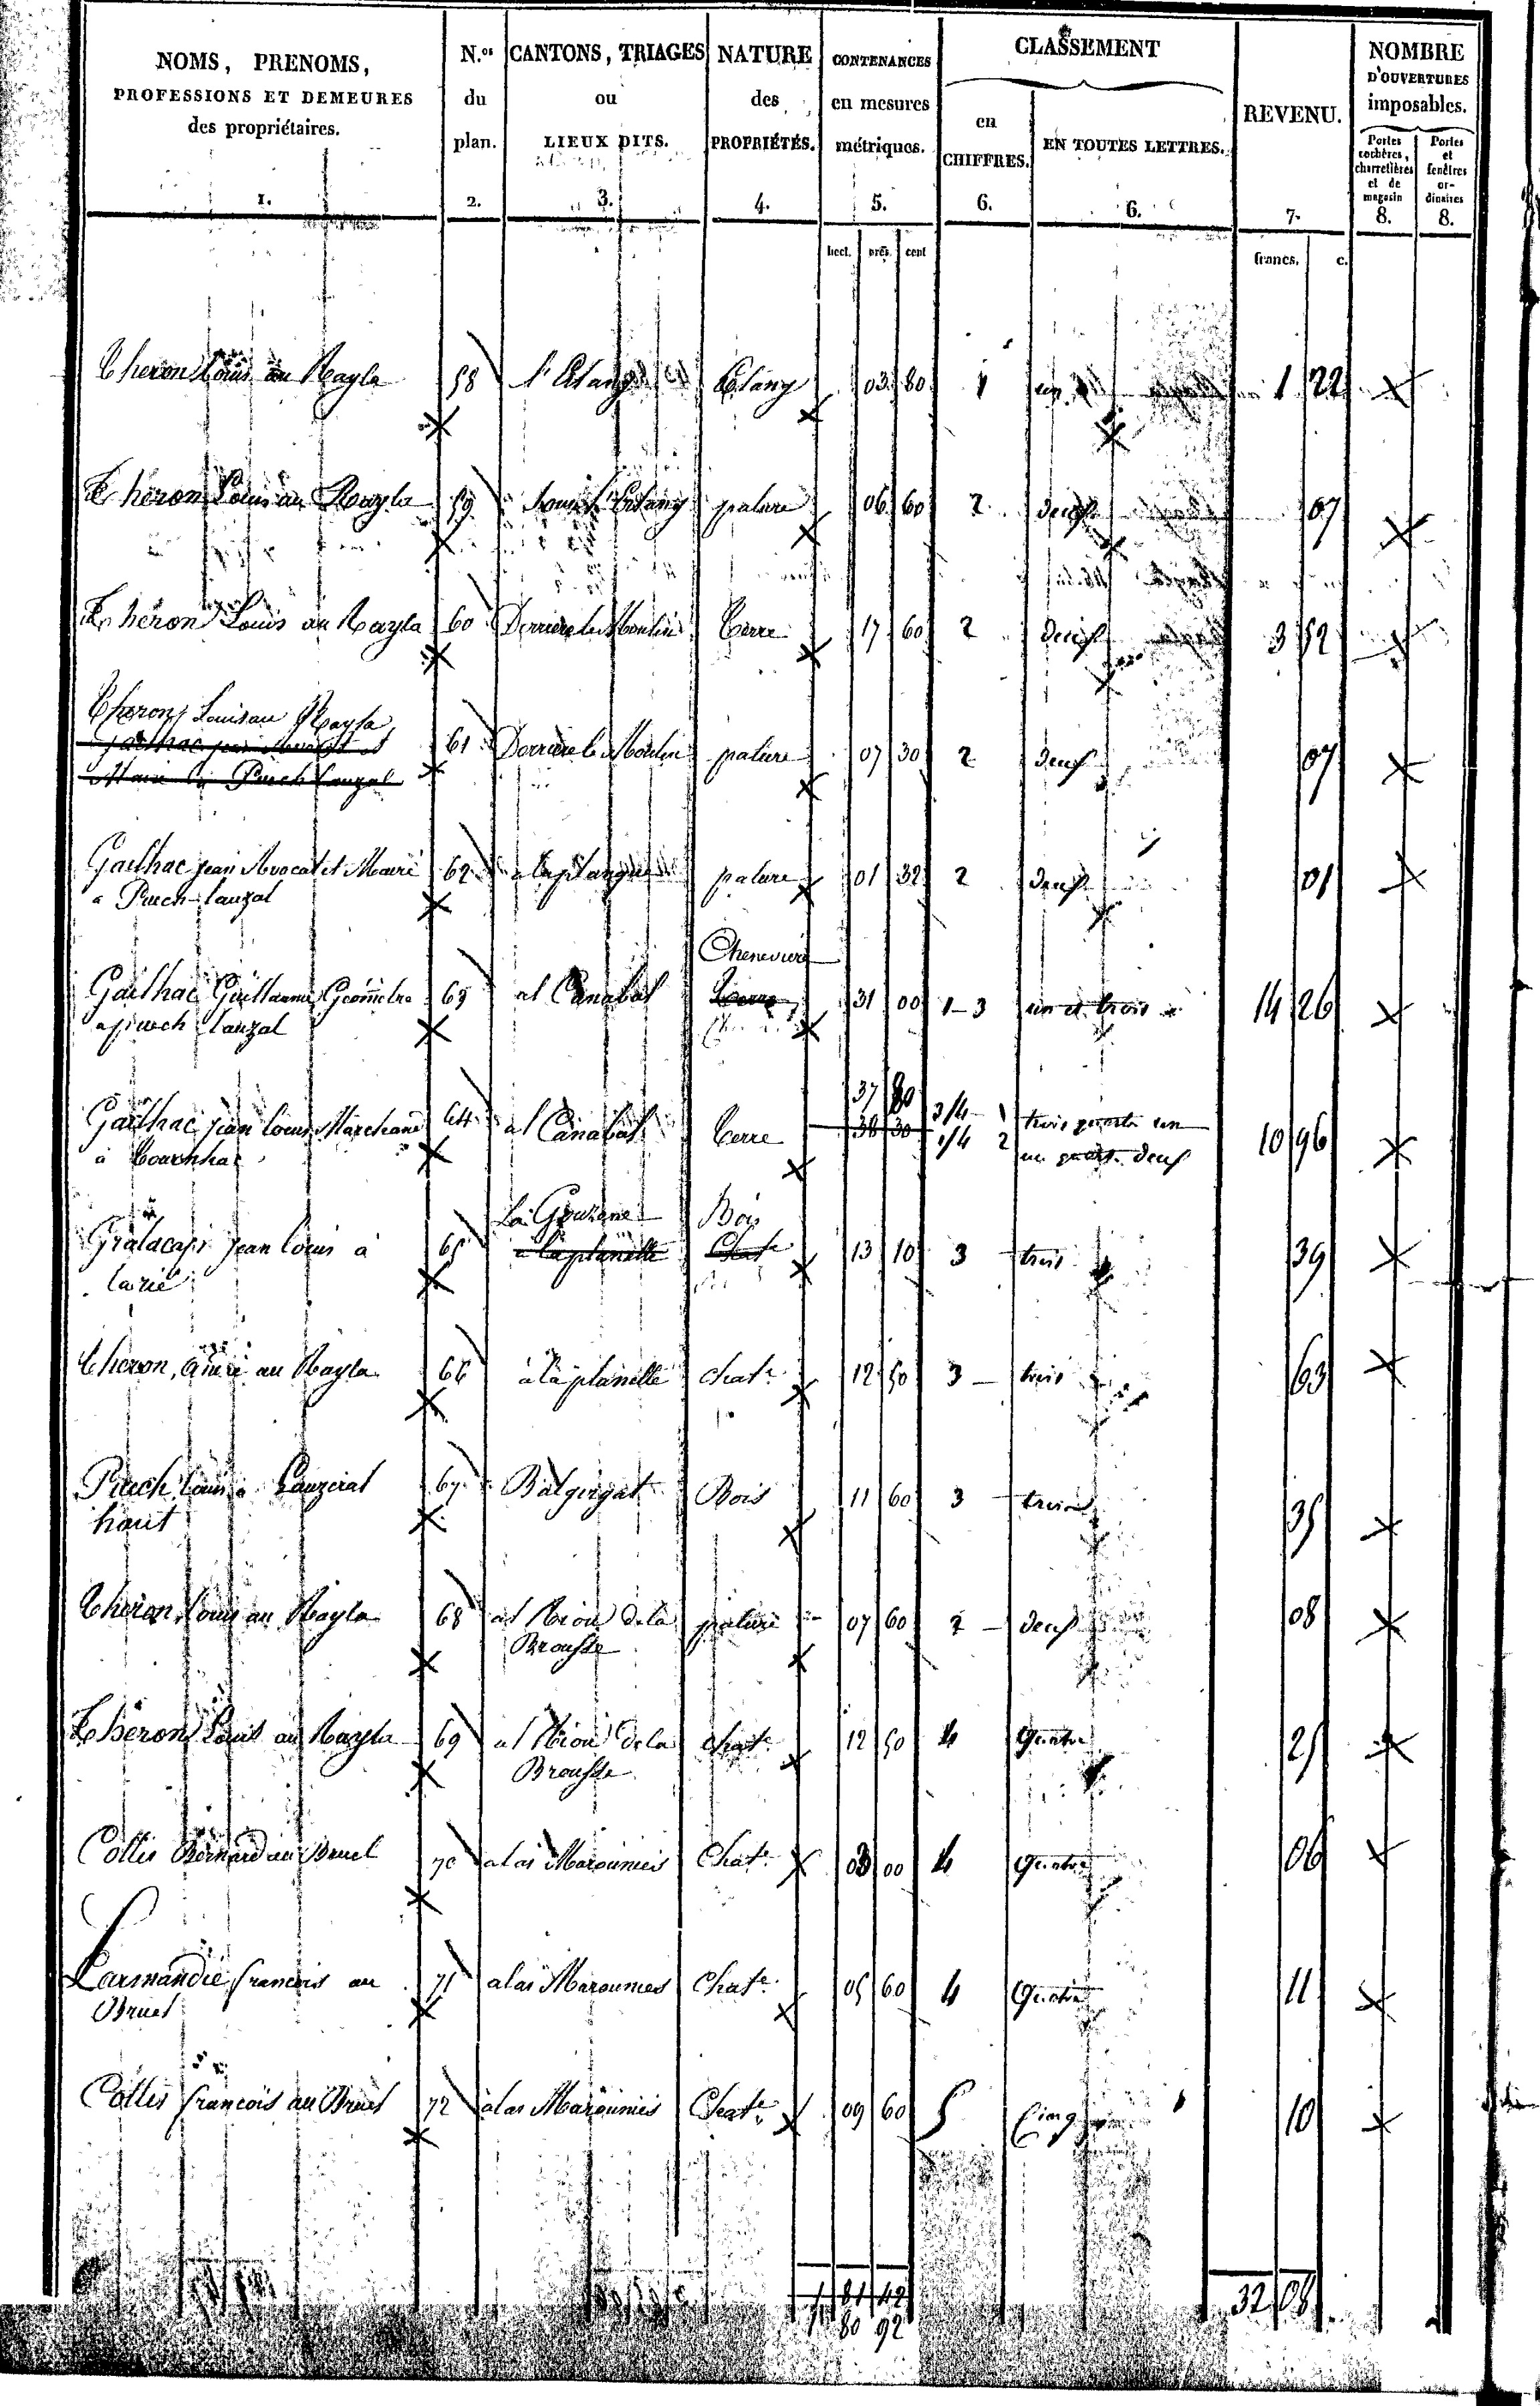 NOMS, PRENOMS, PROFESSIONS ET DEMEURES des propriétaires. 1. | N.os du plan. 2. | CANTONS, TRIAGES ou LIEUX DITS. 3. | NATURE des PROPRIÉTÉS. 4. | CONTENANCES en mesures métriques. 5. | CLASSEMENT en CHIFFRES. 6. | EN TOUTES LETTRES. 6. | REVENU. 7. | NOMBRE D'OUVERTURES imposables. Portes cochères, charretières et de magasin 8. | Portes et fenêtres ordinaires 8.
hect. ares. cent. francs. c.
Theron Louis au Rayla 58 l'Etang Etang 03 80 1 un 1 22
Theron Louis au Rayla 59 Sous l'Etang pature 06 60 2 deux 07
Theron Louis au Rayla 60 Derriere le Moulin Terre 17 60 2 deux 3 52
Theron Louis au Rayla
Gailhac jean Avocat et
Maire à Puech lauzal
61 Derriere le Moulin pature 07 30 2 deux 07
Gailhac jean Avocat et Maire 62 pature 01 32 2 deux 01
a Puech-lauzal
Cheneviere
Gailhac Guillaume Geometre 63 al Canabal Terre 31 00 1-3 un et trois 14 26
a puech lauzal
37 80 3/4 1 trois quarts un
Gailhac jean louis Marchand 64 al Canabal Terre 38 30 1/4 2 un quart deux 10 96
à Tournhac
La Gouzene Bois
Gratacap jean louis à 65 a la planette Chat.e 13 10 3 trois 39
larié
Theron, ainé au Rayla 66 à la planette chat.e 12 50 3 trois 63
Puech louis à Lauzeral 67 Bois 11 60 3 trois 35
haut
Theron, louis au Rayla 68 al Riou de la pature 07 60 2 deux 08
Brousse
Theron Louis au Rayla 69 al Riou de la chat.e 12 50 4 Quatre 25
Brousse
Colles Bernard au Bruel 70 a las Marounies Chat.e 03 00 4 Quatre 06
Larmandie francois au 71 a las Marounies Chat.e 05 60 4 Quatre 11
Bruel
Colles francois au Bruel 72 à las Marounies Chat.e 09 60 5 Cinq 10
1 81 42 32 08
1 80 92